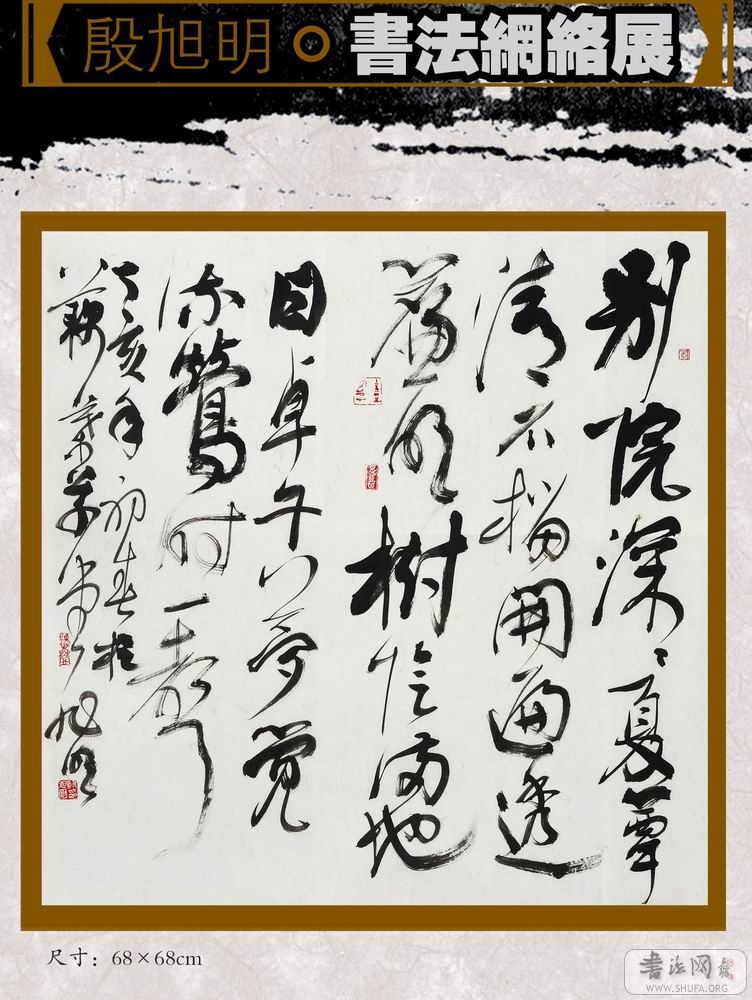 殷旭明 書法網絡展
别院深〻夏簟
清石榴開遍透
簾明樹陰滿地
日卓午夢覺
流鶯时一聲
丁亥年初春於
草堂旭明
尺寸：68×68cm
書法网
WWW.SHUFA.ORG